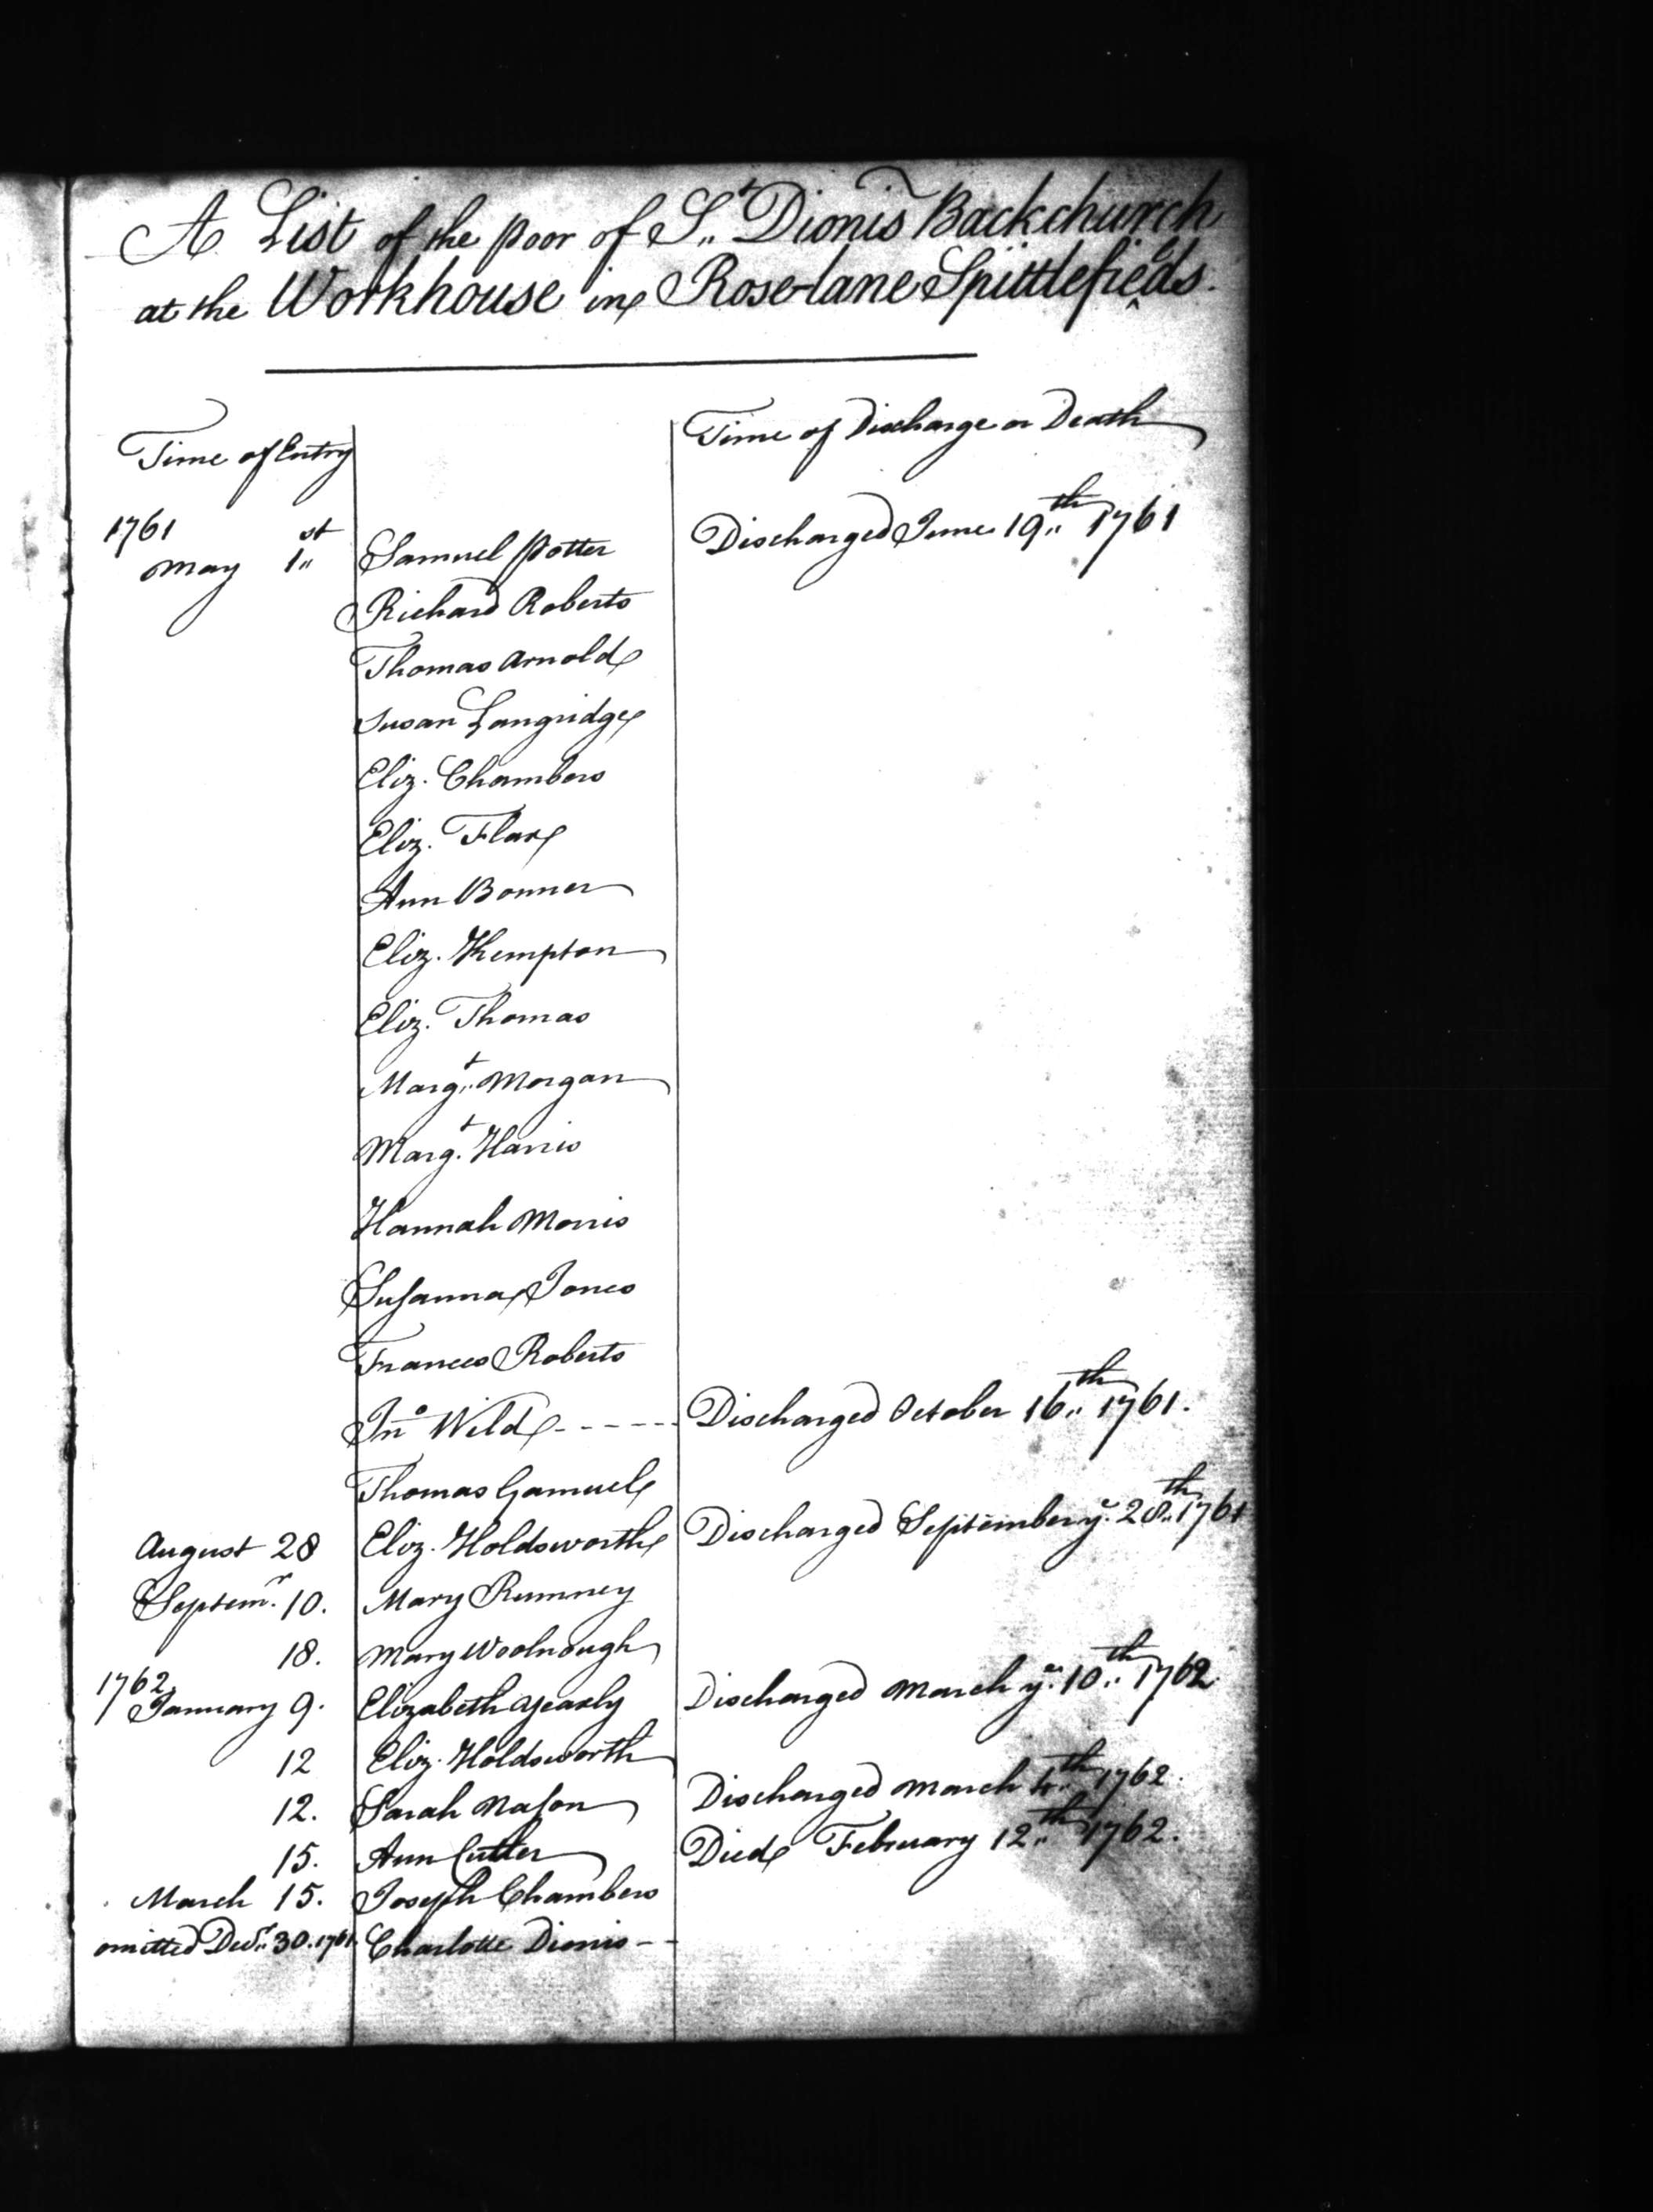 A List of the poor of St. Dionis Backchurch
at the Workhouse in Rose-lane Spittlefields.
Time of Entry Time of Discharge or Death
1761
May 1st Samuel Potter Discharged June 19th 1761
Richard Roberts
Thomas Arnold
Susan Langridge
Eliz. Chambers
Eliz. Flax
Ann Bonner
Eliz. Kempton
Eliz. Thomas
Margt. Morgan
Margt. Harris
Hannah Morris
Susanna Jones
Frances Roberts
Jno Wild ----- Discharged October 16th 1761.
Thomas Gamuel
August 28 Eliz. Holdsworth Discharged September ye. 28th 1761
Septemr. 10. Mary Rumney
18. Mary Woolnough
1762
January 9. Elizabeth Yearly Discharged March ye. 10th 1762
12 Eliz. Holdsworth
12. Sarah Nason Discharged March 4th 1762.
15. Ann Cutler Died February 12th 1762.
March 15. Joseph Chambers
omitted Decr. 30. 1761. Charlotte Dionis --